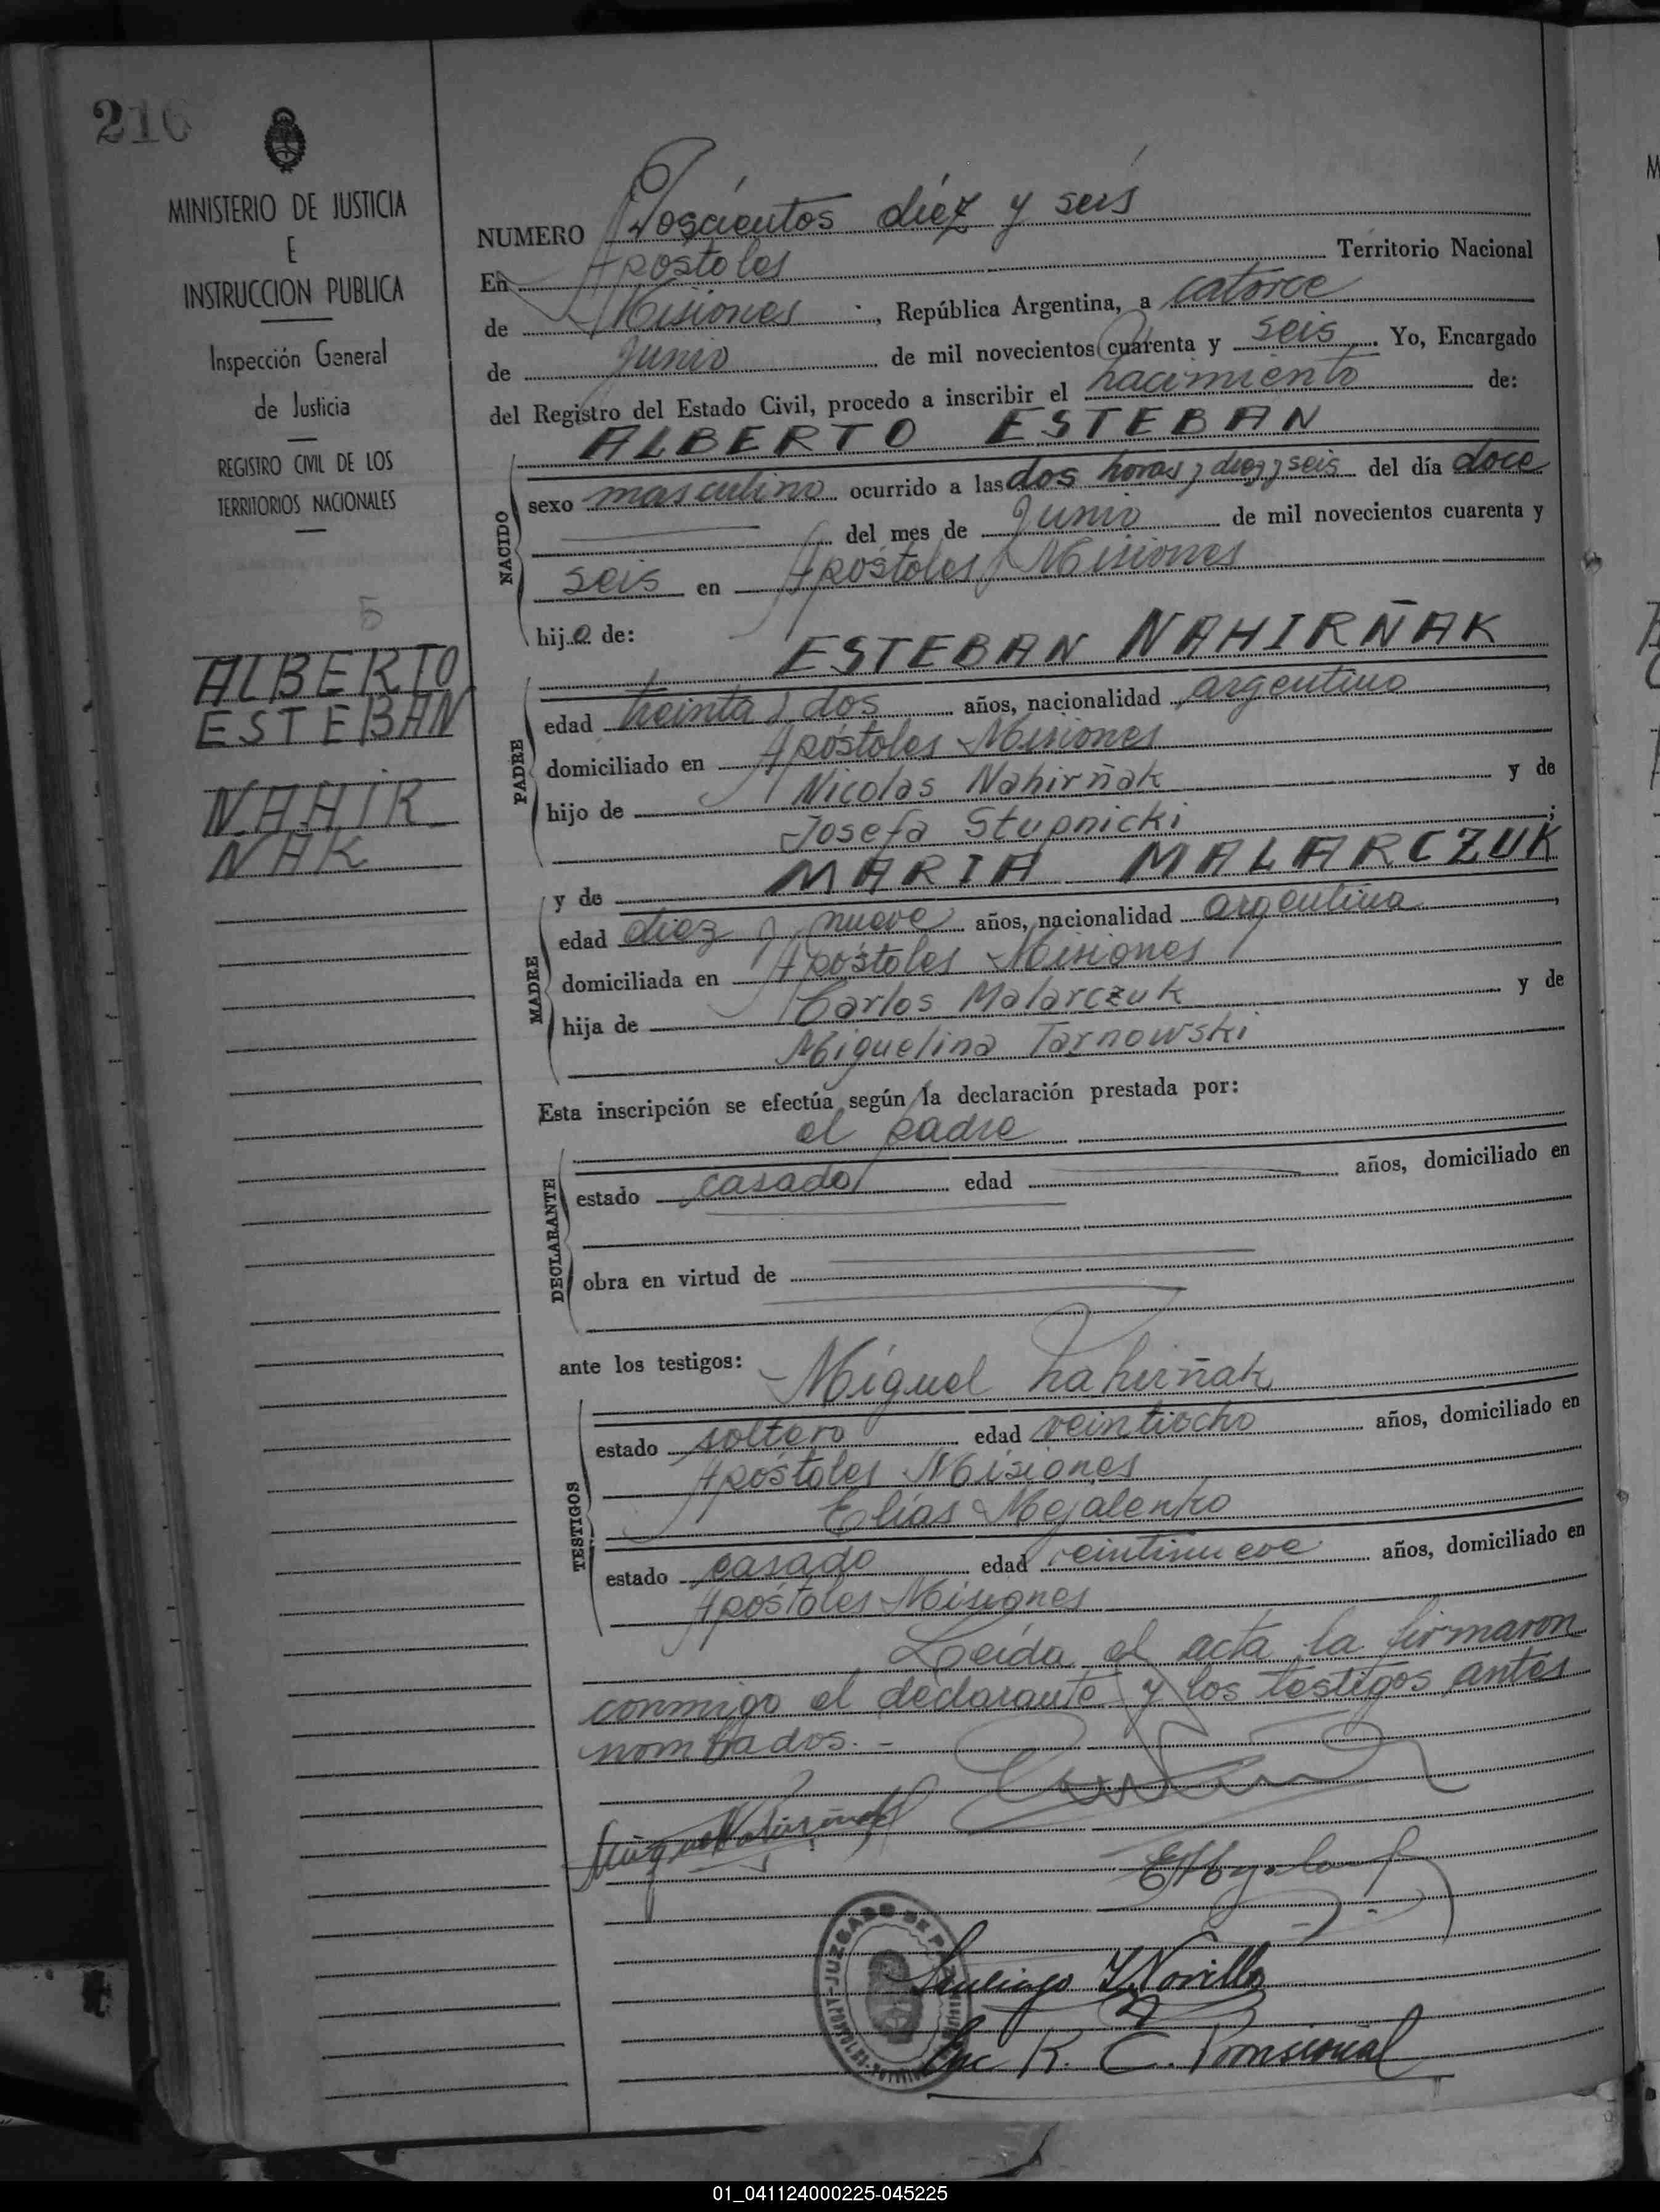 216
MINISTERIO DE JUSTICIA
E
INSTRUCCION PUBLICA
Inspección General
de Justicia
REGISTRO CIVIL DE LOS
TERRITORIOS NACIONALES
5
ALBERTO
ESTEBAN
NAHIR
ÑAK
NUMERO Doscientos diez y seis
En Apostoles Territorio Nacional
de Misiones, República Argentina, a catorce
de Junio de mil novecientos cuarenta y seis. Yo, Encargado
del Registro del Estado Civil, procedo a inscribir el nacimiento de:
ALBERTO ESTEBAN
NACIDO
sexo masculino ocurrido a las dos horas y diez y seis del día doce
del mes de Junio de mil novecientos cuarenta y
seis en Apóstoles Misiones
hijo de:
ESTEBAN NAHIRÑAK
PADRE
edad treinta y dos años, nacionalidad argentino,
domiciliado en Apóstoles Misiones
hijo de Nicolas Nahirñak y de
Josefa Stupnicki;
y de MARIA MALARCZUK
MADRE
edad diez y nueve años, nacionalidad argentina,
domiciliada en Apóstoles Misiones
hija de Carlos Malarczuk y de
Miguelina Tarnowski
Esta inscripción se efectúa según la declaración prestada por:
el padre
DECLARANTE
estado casado edad años, domiciliado en
obra en virtud de
ante los testigos: Miguel Nahirñak
TESTIGOS
estado soltero edad veintiocho años, domiciliado en
Apóstoles Misiones
Elías Mejalenko
estado casado edad veintinueve años, domiciliado en
Apóstoles Misiones
Leída el acta la firmaron
conmigo el declarante y los testigos antes
nombrados. -
Miguel Nahirñak
JUZGADO DE PAZ
Santiago Y Novillo
Enc R. C. Provisional
01_041124000225-045225